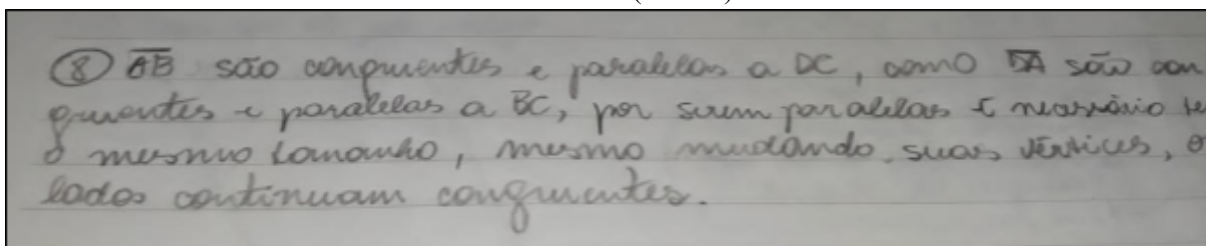 ⑧ AB são congruentes e paralelas a DC, como DA são con
gruentes e paralelas a BC, por serem paralelas é necessário te
o mesmo tamanho, mesmo mudando suas vértices, o
lados continuam congruentes.